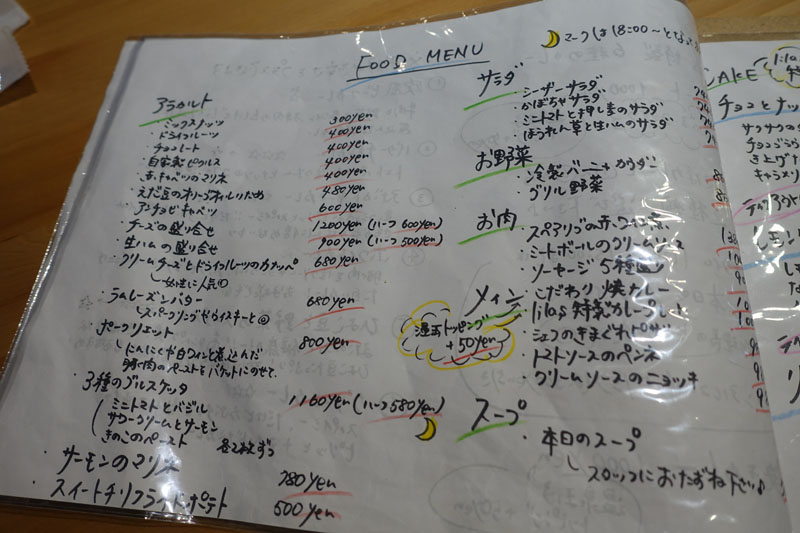 FOOD MENU
マークは18:00〜となって
アラカルト
・ミックスナッツ 300yen
・ドライフルーツ 400yen
・チョコレート 400yen
・自家製ピクルス 400yen
・赤キャベツのマリネ 400yen
・えだ豆のオリーブオイルいため 480yen
・アンチョビキャベツ 600yen
・チーズの盛り合せ 1200yen (ハーフ600yen)
・生ハムの盛り合せ 900yen (ハーフ500yen)
・クリームチーズとドライフルーツのカナッペ 680yen
女性に人気
・ラムレーズンバター 680yen
スパークリングやウイスキーと◎
・ポークリエット 800yen
にんにくや白ワインと煮込んだ
豚肉のペーストをバケットにのせて。
・3種のブルスケッタ 1160yen (ハーフ580yen)
ミニトマトとバジル
サワークリームとサーモン
きのこのペースト 各2枚ずつ
・サーモンのマリネ 780yen
・スイートチリフライドポテト 500yen
サラダ
・シーザーサラダ
・かぼちゃサラダ
・ミニトマトと押し麦のサラダ
・ほうれん草と生ハムのサラダ
お野菜
・冷製バーニャカウダー
・グリル野菜
お肉
・スペアリブの赤ワイン煮
・ミートボールのクリームソース
・ソーセージ5種盛り
メイン
・こだわり焼カレー
・特製カレープレート
・シェフのきまぐれピザ
・トマトソースのペンネ
・クリームソースのニョッキ
温玉トッピング
+50yen
スープ
・本日のスープ
スタッフにおたずね下さい♪
CAKE
チョコとナッ
サクサクの